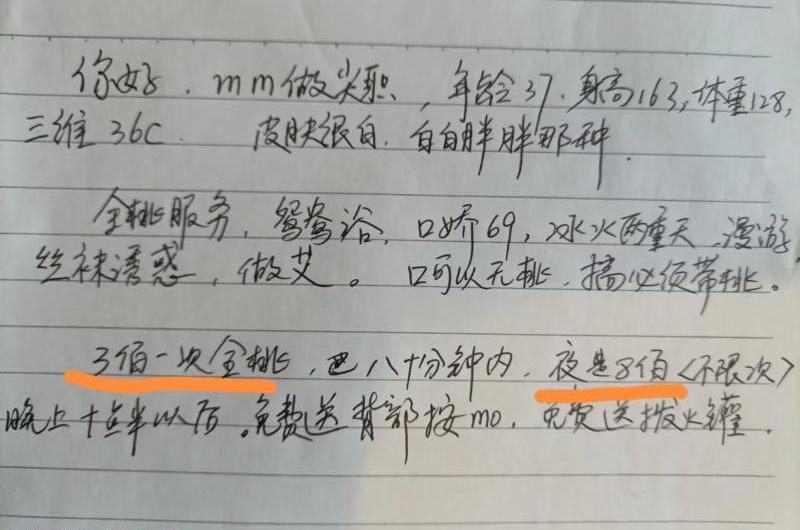 你好.mm做尖职,年龄37.身高163,体重128,
三维36C.皮肤很白.白白胖胖那种.
全桃服务,鸳鸯浴,口娇69,冰火两重天.漫游
丝袜诱惑,做艾。口可以无桃.搞必须带桃。
3佰一次全桃,八十分钟内.夜是8佰<不限次>
晚上十点半以后。免费送背部按mo.免费送拨火罐.